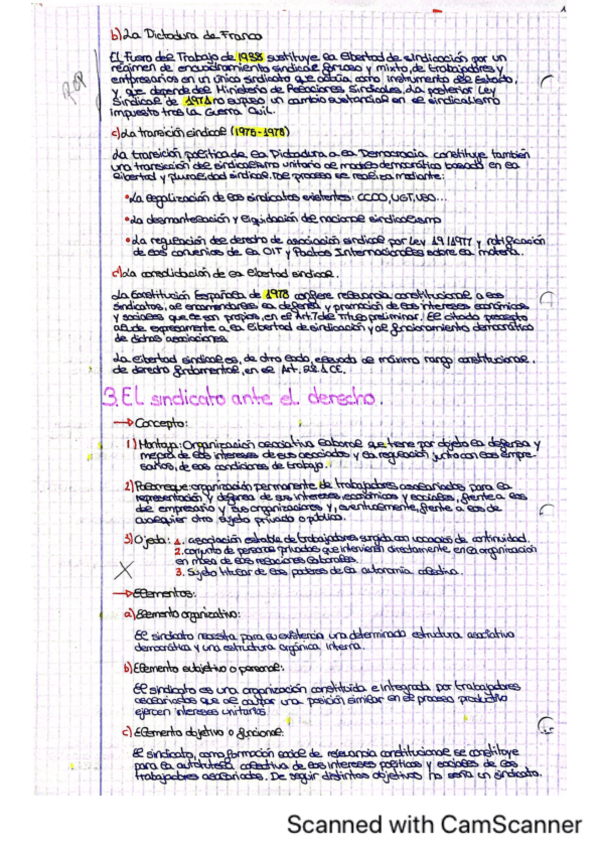 b) La Dictadura de Franco
El Fuero del Trabajo de 1938 sustituye la libertad de sindicación por un
régimen de encuadramiento sindical forzoso y mixto, de trabajadores y
empresarios en un único sindicato que actúa como instrumento del Estado,
y que depende del Ministerio de Relaciones Sindicales. La posterior Ley
Sindical de 1971 no supuso un cambio sustancial en el sindicalismo
impuesto tras la Guerra Civil.
c) La transición sindical (1975-1978)
La transición política de la Dictadura a la Democracia constituye también
una transición del sindicalismo unitario al modelo democrático basado en la
libertad y pluralidad sindical. Tal proceso se realiza mediante:
• La legalización de los sindicatos existentes: CCOO, UGT, USO...
• La desmantelación y liquidación del nacional sindicalismo
• La regulación del derecho de asociación sindical por Ley 19/1977 y ratificación
de los convenios de la OIT y Pactos Internacionales sobre la materia.
d) La consolidación de la libertad sindical.
La Constitución Española de 1978 confiere relevancia constitucional a los
sindicatos, al encomendarles la defensa y promoción de los intereses económicos
y sociales que les son propios, en el Art. 7 del Título preliminar. El citado precepto
alude expresamente a la libertad de sindicación y al funcionamiento democrático
de dichas asociaciones.
La libertad sindical es, de otro lado, elevada al máximo rango constitucional,
de derecho fundamental, en el Art. 28.1 CE.
3. El sindicato ante el derecho.
→ Concepto:
1) Montoya: Organización asociativa laboral que tiene por objeto la defensa y
mejora de los intereses de sus asociados y la regulación, junto con los empre-
sarios, de las condiciones de trabajo.
2) Palomeque: organización permanente de trabajadores asalariados para la
representación y defensa de sus intereses económicos y sociales, frente a los
del empresario y sus organizaciones y, eventualmente, frente a los de
cualquier otro sujeto privado o público.
3) Ojeda: 1. asociación estable de trabajadores surgida con vocación de continuidad.
2. conjunto de personas privadas que intervienen directamente en la organización
en masa de las relaciones laborales.
3. Sujeto titular de los poderes de la autonomía colectiva.
→ Elementos:
a) Elemento organizativo:
El sindicato necesita para su existencia una determinada estructura asociativa
democrática y una estructura orgánica interna.
b) Elemento subjetivo o personal:
El sindicato es una organización constituida e integrada por trabajadores
asalariados que al ocupar una posición similar en el proceso productivo
ejercen intereses unitarios
c) Elemento objetivo o funcional:
El sindicato, como formación social de relevancia constitucional se constituye
para la autotutela colectiva de los intereses políticos y sociales de los
trabajadores asalariados. De seguir distintos objetivos no sería un sindicato.
Scanned with CamScanner